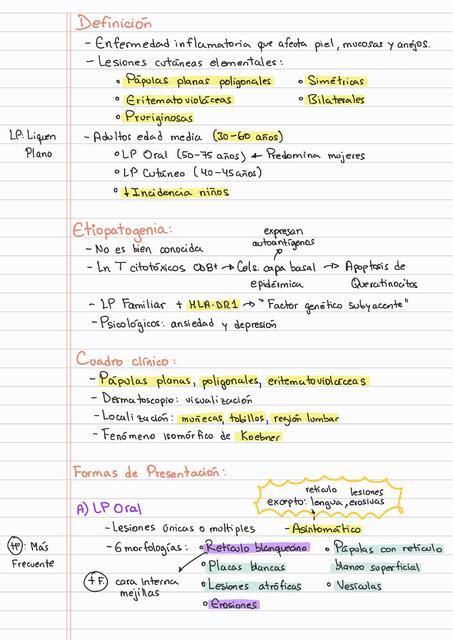 Definición
- Enfermedad inflamatoria que afecta piel, mucosas y anejos.
- Lesiones cutáneas elementales:
° Pápulas planas poligonales ° Simétricas
° Eritematovioláceas ° Bilaterales
° Pruriginosas
LP: Liquen
Plano
- Adultos edad media (30-60 años)
° LP Oral (50-75 años) ← Predomina mujeres
° LP Cutáneo (40-45 años)
° ↓ Incidencia niños
Etiopatogenia:
expresan
autoantígenos
- No es bien conocida
- Ln T citotóxicos CD8+ → Cels. capa basal → Apoptosis de
epidérmica Queratinocitos
- LP Familiar + HLA-DR1 → "Factor genético subyacente"
- Psicológicos: ansiedad y depresión
Cuadro clínico:
- Pápulas planas, poligonales, eritematovioláceas
- Dermatoscopio: visualización
- Localización: muñecas, tobillos, región lumbar
- Fenómeno isomórfico de Koebner
Formas de Presentación:
retículo lesiones
excepto: lengua, erosivas
A) LP Oral
- Lesiones únicas o multiples - Asintomático
+F: Más
Frecuente
- 6 morfologías: ° Retículo blanquecino ° Pápulas con retículo
° Placas blancas blanco superficial
+F. cara interna
mejillas
° Lesiones atróficas ° Vesículas
° Erosiones